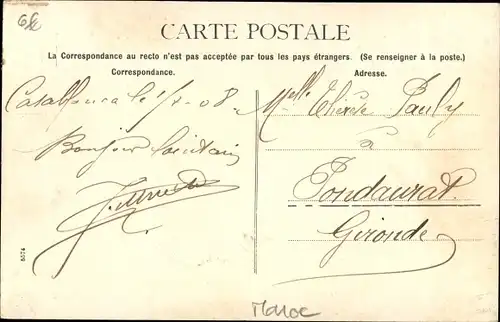 CARTE POSTALE
La Correspondance au recto n'est pas acceptée par tous les pays étrangers. (Se renseigner à la poste.)
Correspondance.
Adresse.
Casablanca le 1/1-08
Bonjour lointain
Melle Thérèse Pauly
à
Fondaurat
Gironde
5574
Maroc